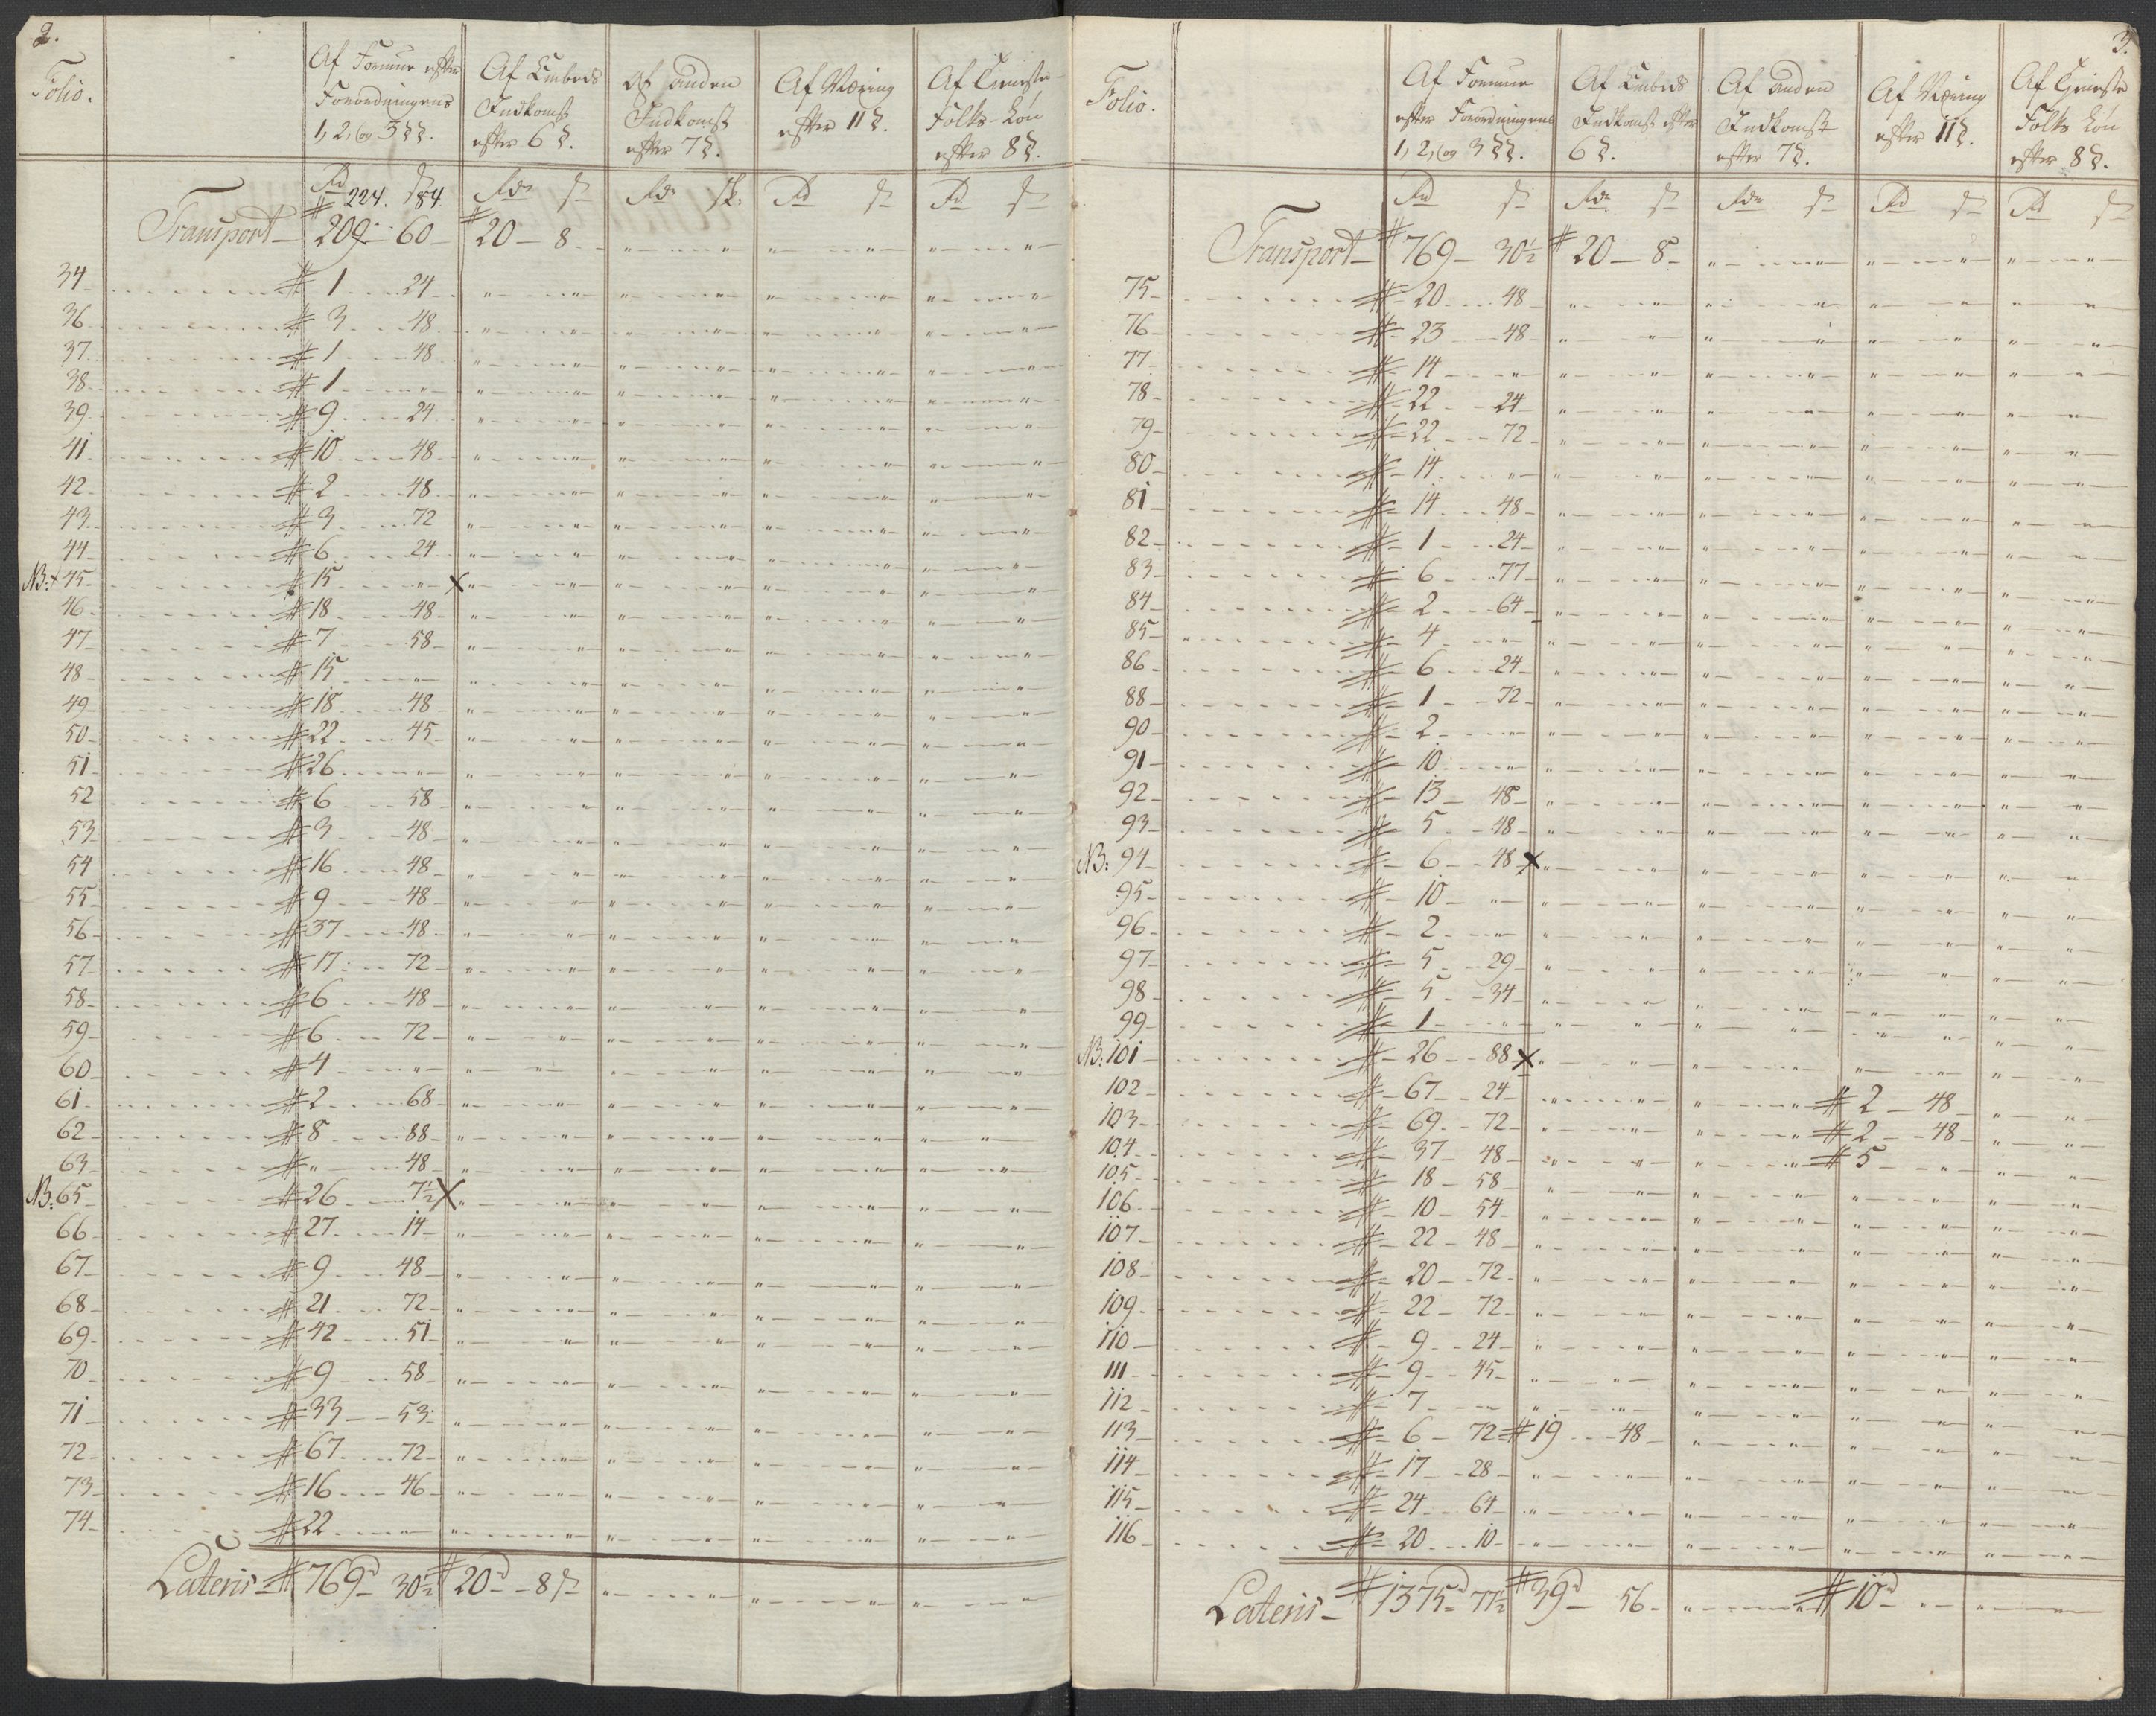 2.
Folio.
Af Formue efter Forordningens 1, 2, og 3 §§.
Af Embeds Indkomst efter 6 §.
Af anden Indkomst efter 7 §.
Af Næring efter 11 §.
Af Tieneste-Folks-Løn efter 8 §.
Rd ß Rdr ß Rdr sk: Rd ß Rd ß
# 224. 84.
Transport – 209 – 60 – # 20 – 8 –
34 – # 1 – 24
36 – # 3 – 48
37 – # 1 – 48
38 – # 1 – „
39 – # 9 – 24
41 – # 10 – 48
42 – # 2 – 48
43 – # 3 – 72
44 – # 6 – 24
NB: + 45 – # 15 – „ X
46 – # 18 – 48
47 – # 7 – 58
48 – # 15 – „
49 – # 18 – 48
50 – # 22 – 45
51 – # 26 – „
52 – # 6 – 58
53 – # 3 – 48
54 – # 16 – 48
55 – # 9 – 48
56 – # 37 – 48
57 – # 17 – 72
58 – # 6 – 48
59 – # 6 – 72
60 – # 4 – „
61 – # 2 – 68
62 – # 8 – 88
63 – # „ – 48
NB: 65 – # 26 – 7½ X
66 – # 27 – 14
67 – # 9 – 48
68 – # 21 – 72
69 – # 42 – 51
70 – # 9 – 58
71 – # 33 – 53
72 – # 67 – 72
73 – # 16 – 46
74 – # 22 – „
Lateris – # 769d 30½ # 20d – 8 ß
3.
Folio.
Af Formue efter Forordningens 1, 2, og 3 §§.
Af Embeds Indkomst efter 6 §.
Af anden Indkomst efter 7 §.
Af Næring efter 11 §.
Af Tieneste Folks Løn efter 8 §.
Rd ß Rdr ß Rdr ß Rd ß Rd ß
Transport – # 769 – 30½ # 20 – 8 –
75 – # 20 – 48
76 – # 23 – 48
77 – # 14 – „
78 – # 22 – 24
79 – # 22 – 72
80 – # 14 – „
81 – # 14 – 48
82 – # 1 – 24
83 – # 6 – 77
84 – # 2 – 64
85 – # 4 – „
86 – # 6 – 24
88 – # 1 – 72
90 – # 2 – „
91 – # 10 – „
92 – # 13 – 48
93 – # 5 – 48
NB: 94 – # 6 – 48 X
95 – # 10 – „
96 – # 2 – „
97 – # 5 – 29
98 – # 5 – 34
99 – # 1 – „
NB: 101 – # 26 – 88 X
102 – # 67 – 24 # 2 – 48
103 – # 69 – 72 # 2 – 48
104 – # 37 – 48 # 5 – „
105 – # 18 – 58
106 – # 10 – 54
107 – # 22 – 48
108 – # 20 – 72
109 – # 22 – 72
110 – # 9 – 24
111 – # 9 – 45
112 – # 7 – „
113 – # 6 – 72 # 19 – 48
114 – # 17 – 28
115 – # 24 – 64
116 – # 20 – 10
Lateris – # 1375d 77½ # 39d – 56 – # 10d – „